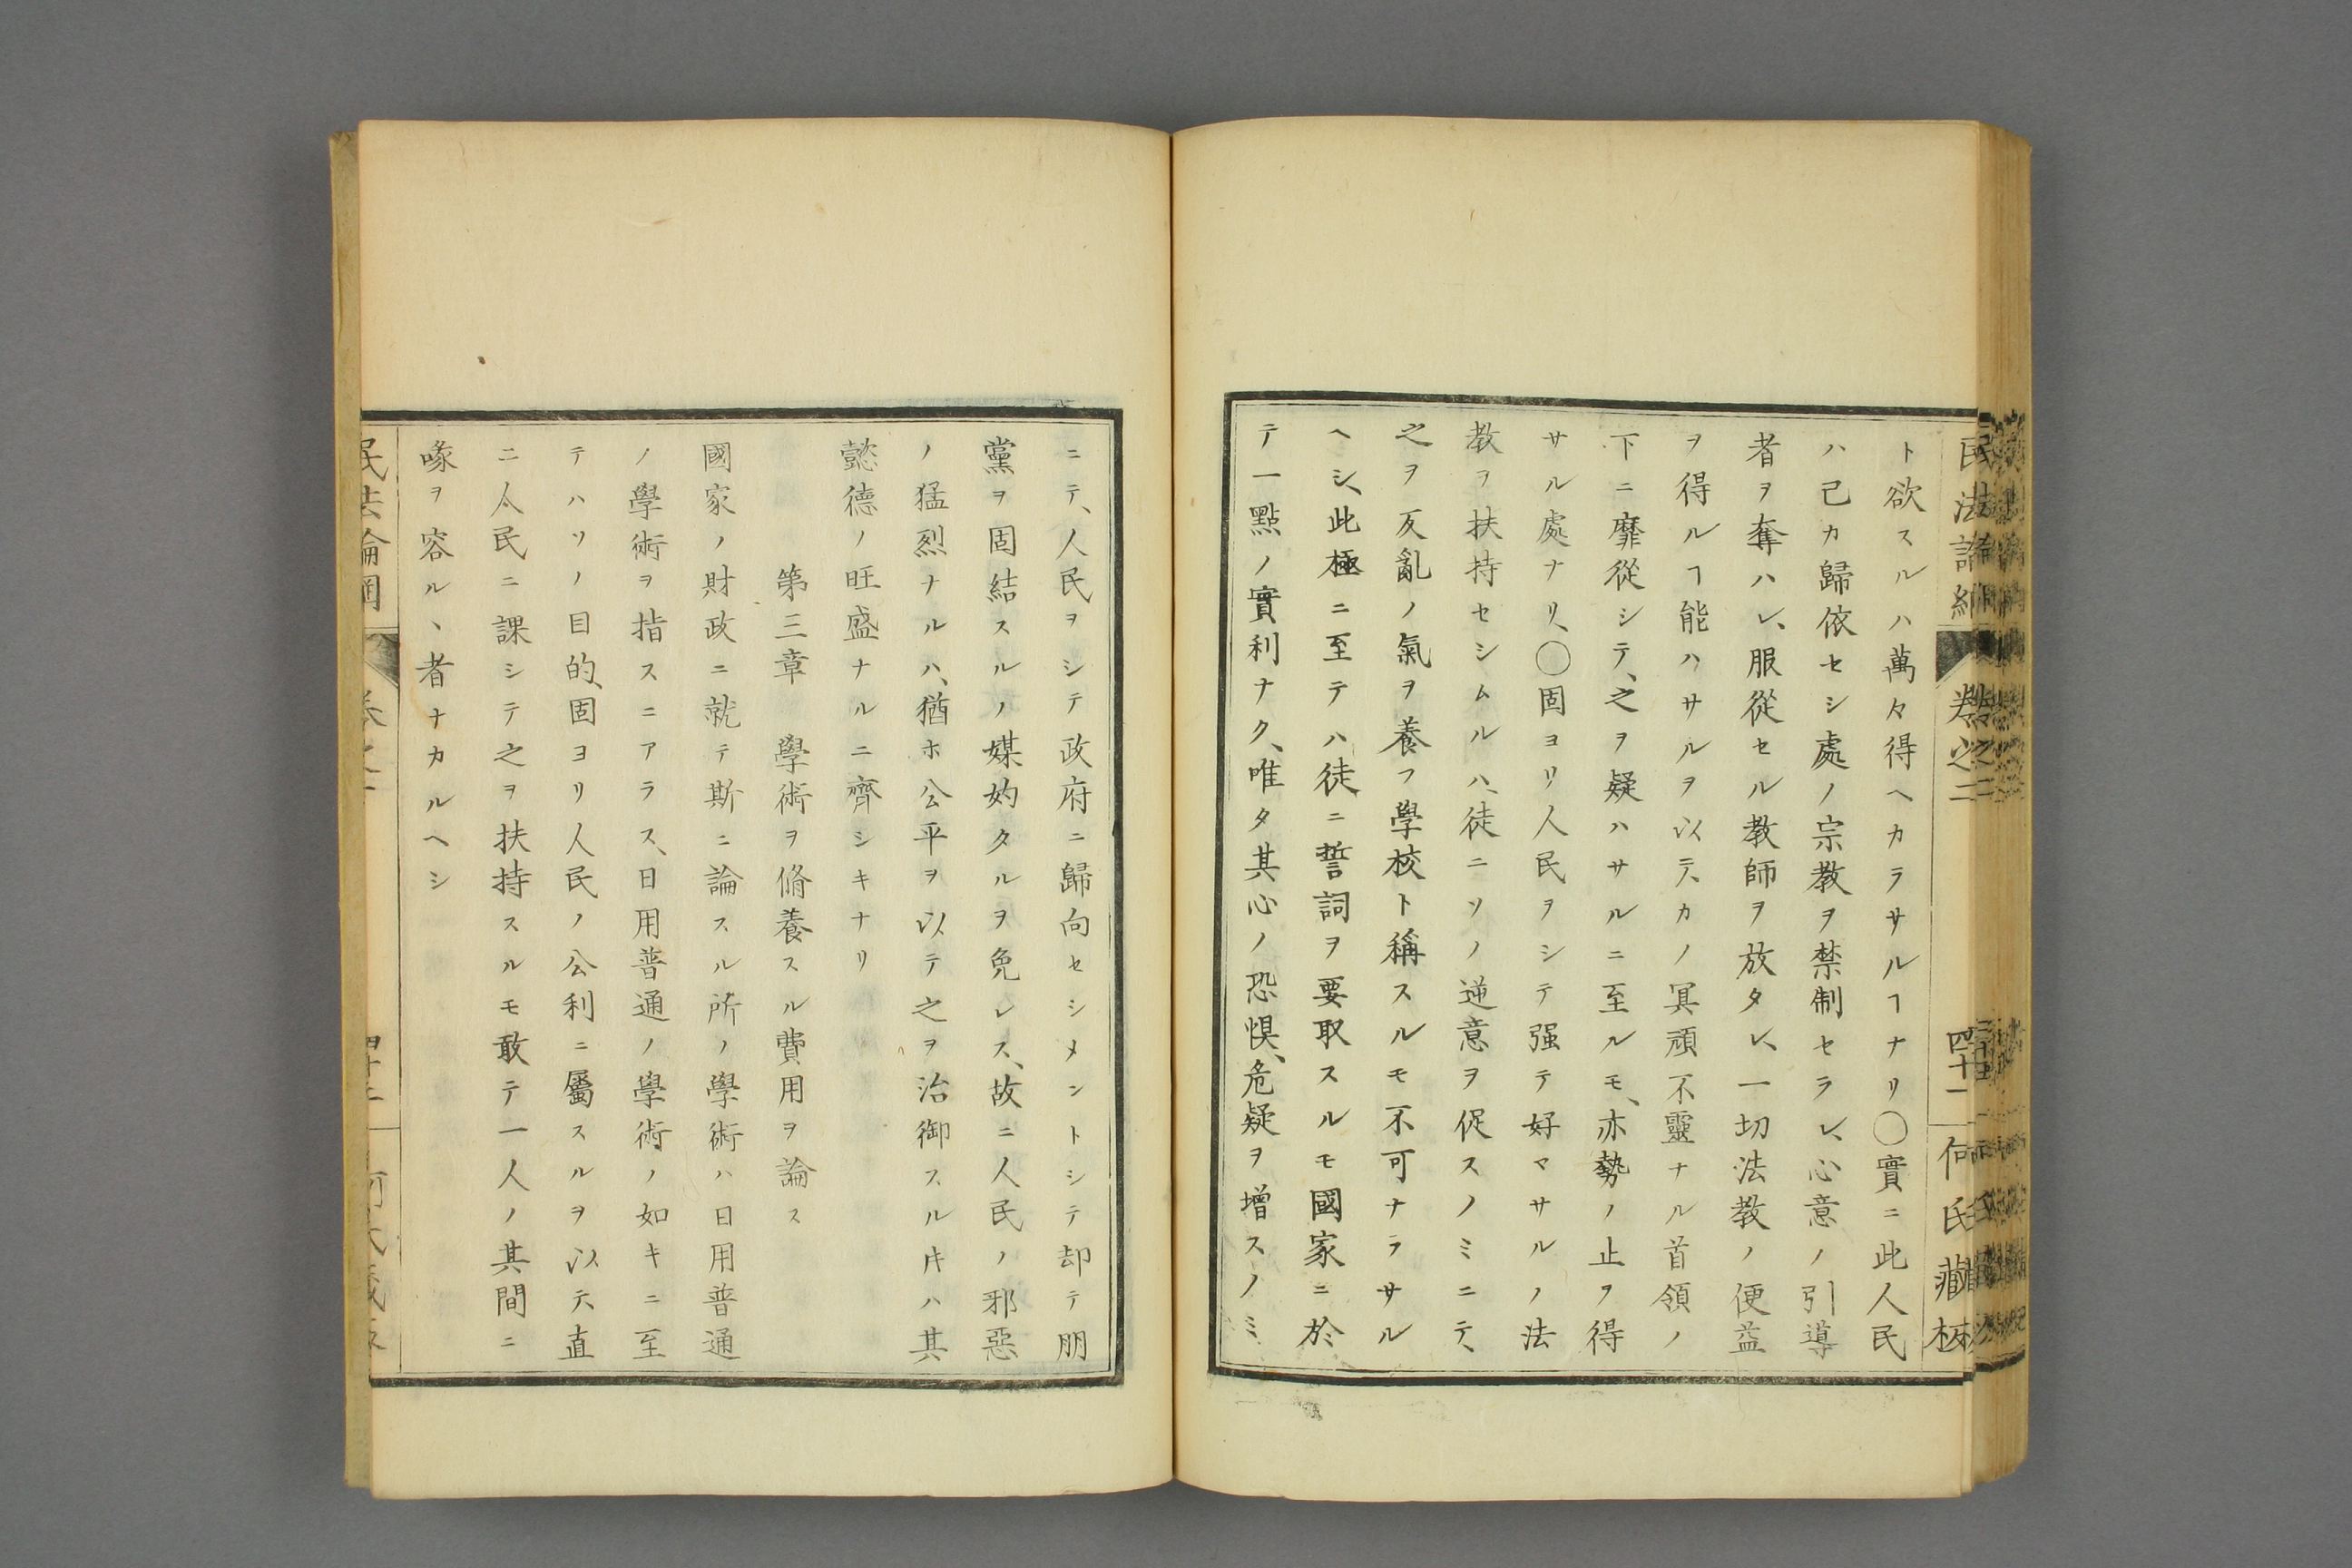 民法論綱 卷之二 四十一 何氏藏板
ト欲スルハ萬々得ヘカラサルヿナリ〇實ニ此人民
ハ己カ歸依セシ處ノ宗教ヲ禁制セラレ、心意ノ引導
者ヲ奪ハレ、服從セル教師ヲ放タレ、一切法教ノ便益
ヲ得ルヿ能ハサルヲ以テ、カノ冥頑不靈ナル首領ノ
下ニ靡從シテ、之ヲ疑ハサルニ至ルモ、亦勢ノ止ヲ得
サル處ナリ、〇固ヨリ人民ヲシテ强テ好マサルノ法
教ヲ扶持セシムルハ、徒ニソノ逆意ヲ促スノミニテ、
之ヲ反亂ノ氣ヲ養フ學校ト稱スルモ不可ナラサル
ヘシ、此極ニ至テハ徒ニ誓詞ヲ要取スルモ國家ニ於
テ一點ノ實利ナク、唯タ其心ノ恐惧、危疑ヲ增スノミ
ニテ、人民ヲシテ政府ニ歸向セシメントシテ却テ朋
黨ヲ固結スルノ媒妁タルヲ免レス、故ニ人民ノ邪惡
ノ猛烈ナルハ、猶ホ公平ヲ以テ之ヲ治御スル𪜈ハ其
懿德ノ旺盛ナルニ齊シキナリ
第三章 學術ヲ脩養スル費用ヲ論ス
國家ノ財政ニ就テ斯ニ論スル所ノ學術ハ日用普通
ノ學術ヲ指スニアラス、日用普通ノ學術ノ如キニ至
テハソノ目的、固ヨリ人民ノ公利ニ屬スルヲ以テ、直
ニ人民ニ課シテ之ヲ扶持スルモ敢テ一人ノ其間ニ
喙ヲ容ルヽ者ナカルヘシ
民法論綱 卷之二